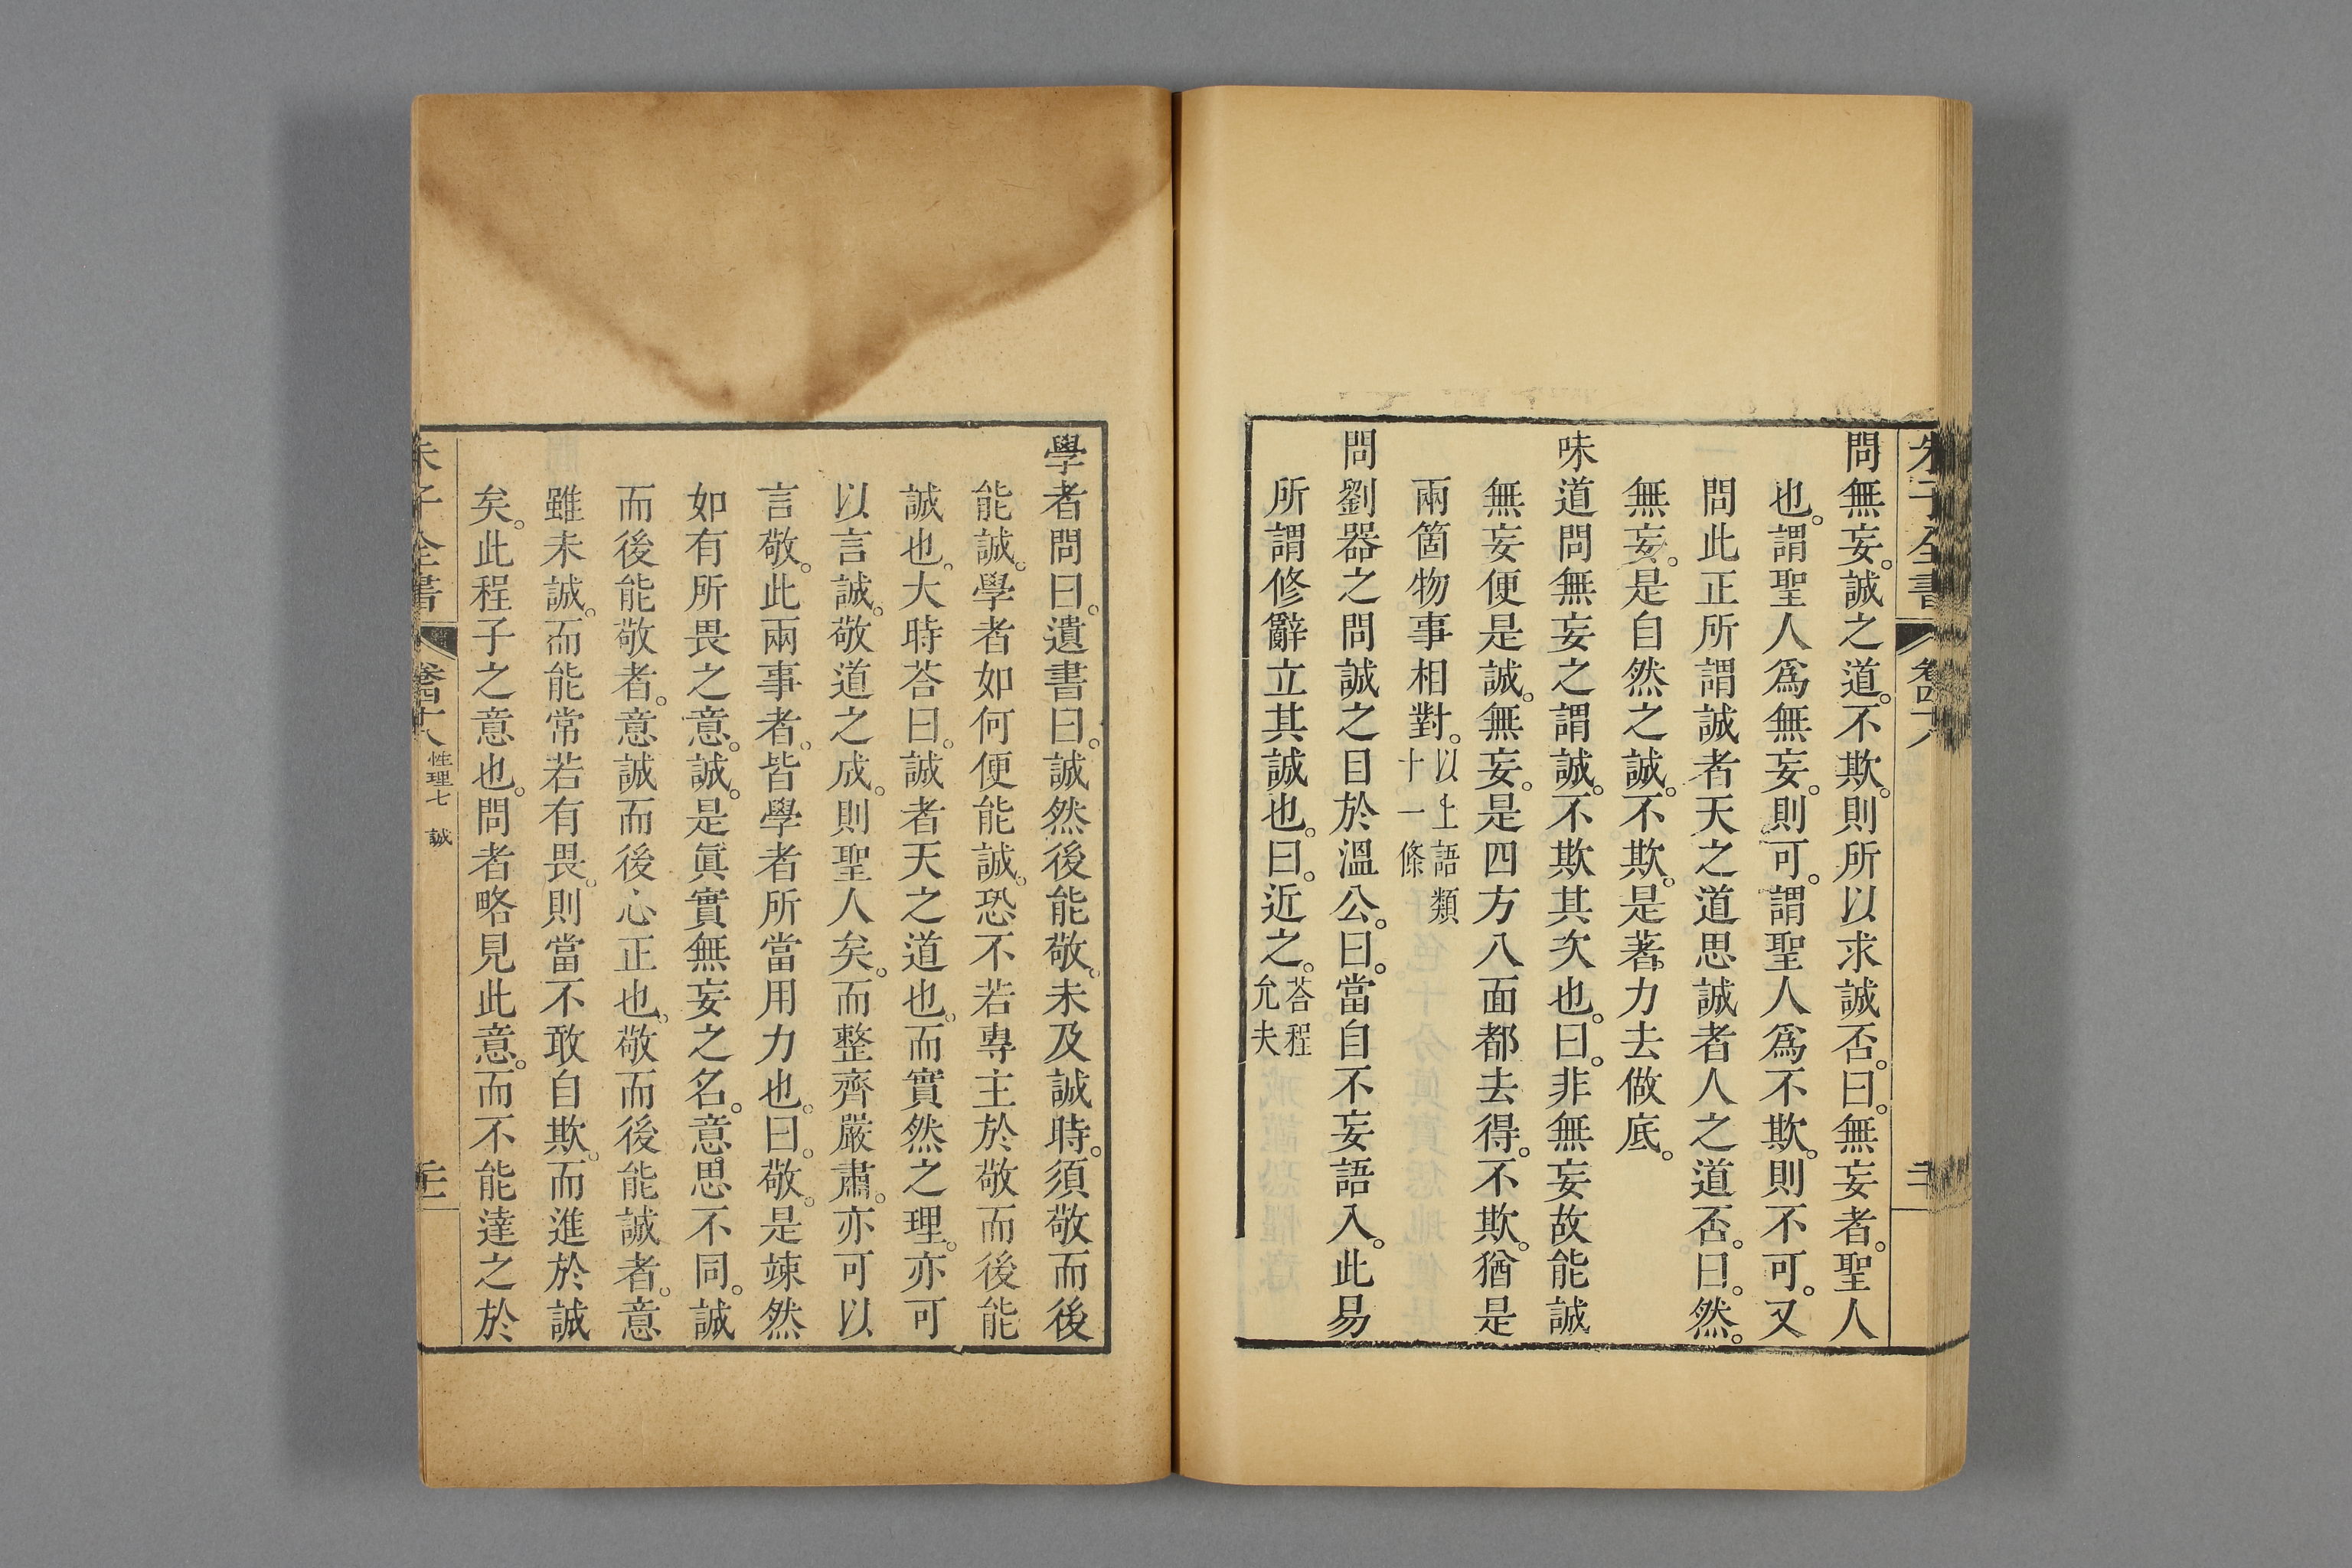 問無妄。誠之道。不欺。則所以求誠否。曰。無妄者。聖人
也。謂聖人爲無妄。則可。謂聖人爲不欺。則不可。又
問此正所謂誠者天之道思誠者人之道否。曰。然。
無妄。是自然之誠。不欺。是著力去做底。
味道問無妄之謂誠。不欺其次也。曰。非無妄故能誠
無妄便是誠。無妄。是四方八面都去得。不欺。猶是
兩箇物事相對。以上語類
十一條
問劉器之問誠之目於溫公。曰。當自不妄語入。此易
所謂修辭立其誠也。曰。近之。荅程
允夫
學者問曰。遺書曰。誠然後能敬。未及誠時。須敬而後
能誠。學者如何便能誠。恐不若專主於敬而後能
誠也。大時荅曰。誠者天之道也。而實然之理。亦可
以言誠。敬道之成。則聖人矣。而整齊嚴肅。亦可以
言敬。此兩事者。皆學者所當用力也。曰。敬。是竦然
如有所畏之意。誠。是眞實無妄之名。意思不同。誠
而後能敬者。意誠而後心正也。敬而後能誠者。意
雖未誠。而能常若有畏。則當不敢自欺。而進於誠
矣。此程子之意也。問者略見此意。而不能達之於
朱子全書
卷四十八
性理七 誠